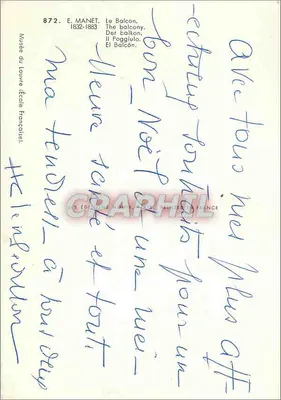 872. E. MANET,
1832-1883
Le Balcon,
The balcony.
Der balkon.
Il Poggiulo.
El Balcón.
Musée du Louvre (École Française).
Avec tous mes plus aff-
-ectueux souhaits pour un
bon Noël et une mei-
lleure santé et tout
ma tendresse à tout deux
FRANCE